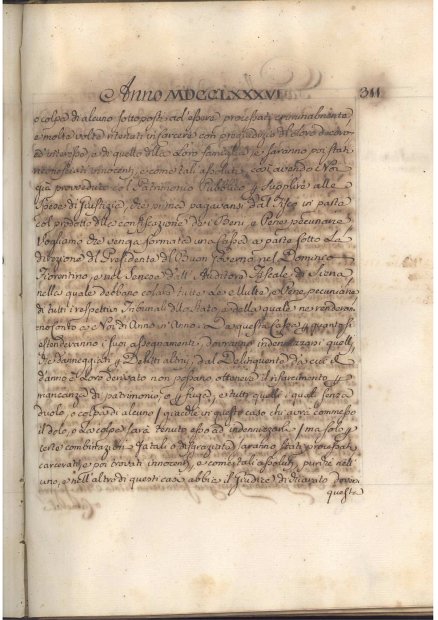 Anno MDCCLXXXVI 311
o colpa di alcuno sottoposti ad essere processati criminalmente
e molte volte ritenuti in carcere con pregiudizio del loro decoro
ed interesse, e di quello delle Loro famiglie e saranno poi stati
riconosciuti innocenti, e come tali assoluti; così avendo Noi
già provveduto col Patrimonio Pubblico p supplire alle
Spese di Giustizia, che prima pagavansi dal Fisco in parte
col prodotto delle confiscazione dei Beni, e Pene pecuniarie
Vogliamo che venga formata una Cassa a parte sotto La
direzione del Presidente del Buon Governo nel Dominio
Fiorentino, e nel Senese dell' Auditore Fiscale di Siena
nella quale debbano colare tutte Le Multe, e Pene pecuniarie
di tutti i respettivi Tribunali dello Stato, e della quale ne renderan
no conto a Noi di Anno in Anno: Da questa Cassa p quanto si
estenderanno i suoi assegnamenti, dovranno indennizzarsi quelli
che danneggiati p Delitti altrui, dal Delinquente da cui il
danno è Loro derivato non possano ottenere il risarcimento p
mancanza di patrimonio, o fuga, e tutti quelli i quali senza
duolo, o colpa di alcuno (giacchè in questo caso chi avrà commesso
il dolo, e La colpa sarà tenuto esso ad indennizzarli) ma solo p
certe combinazioni fatali o disgraziate saranno stati processati
carcerati, e poi trovati innocenti, e come tali assoluti, purchè nell'
uno, e nell'altro di questi casi abbia il Giudice dichiarato dover
questa